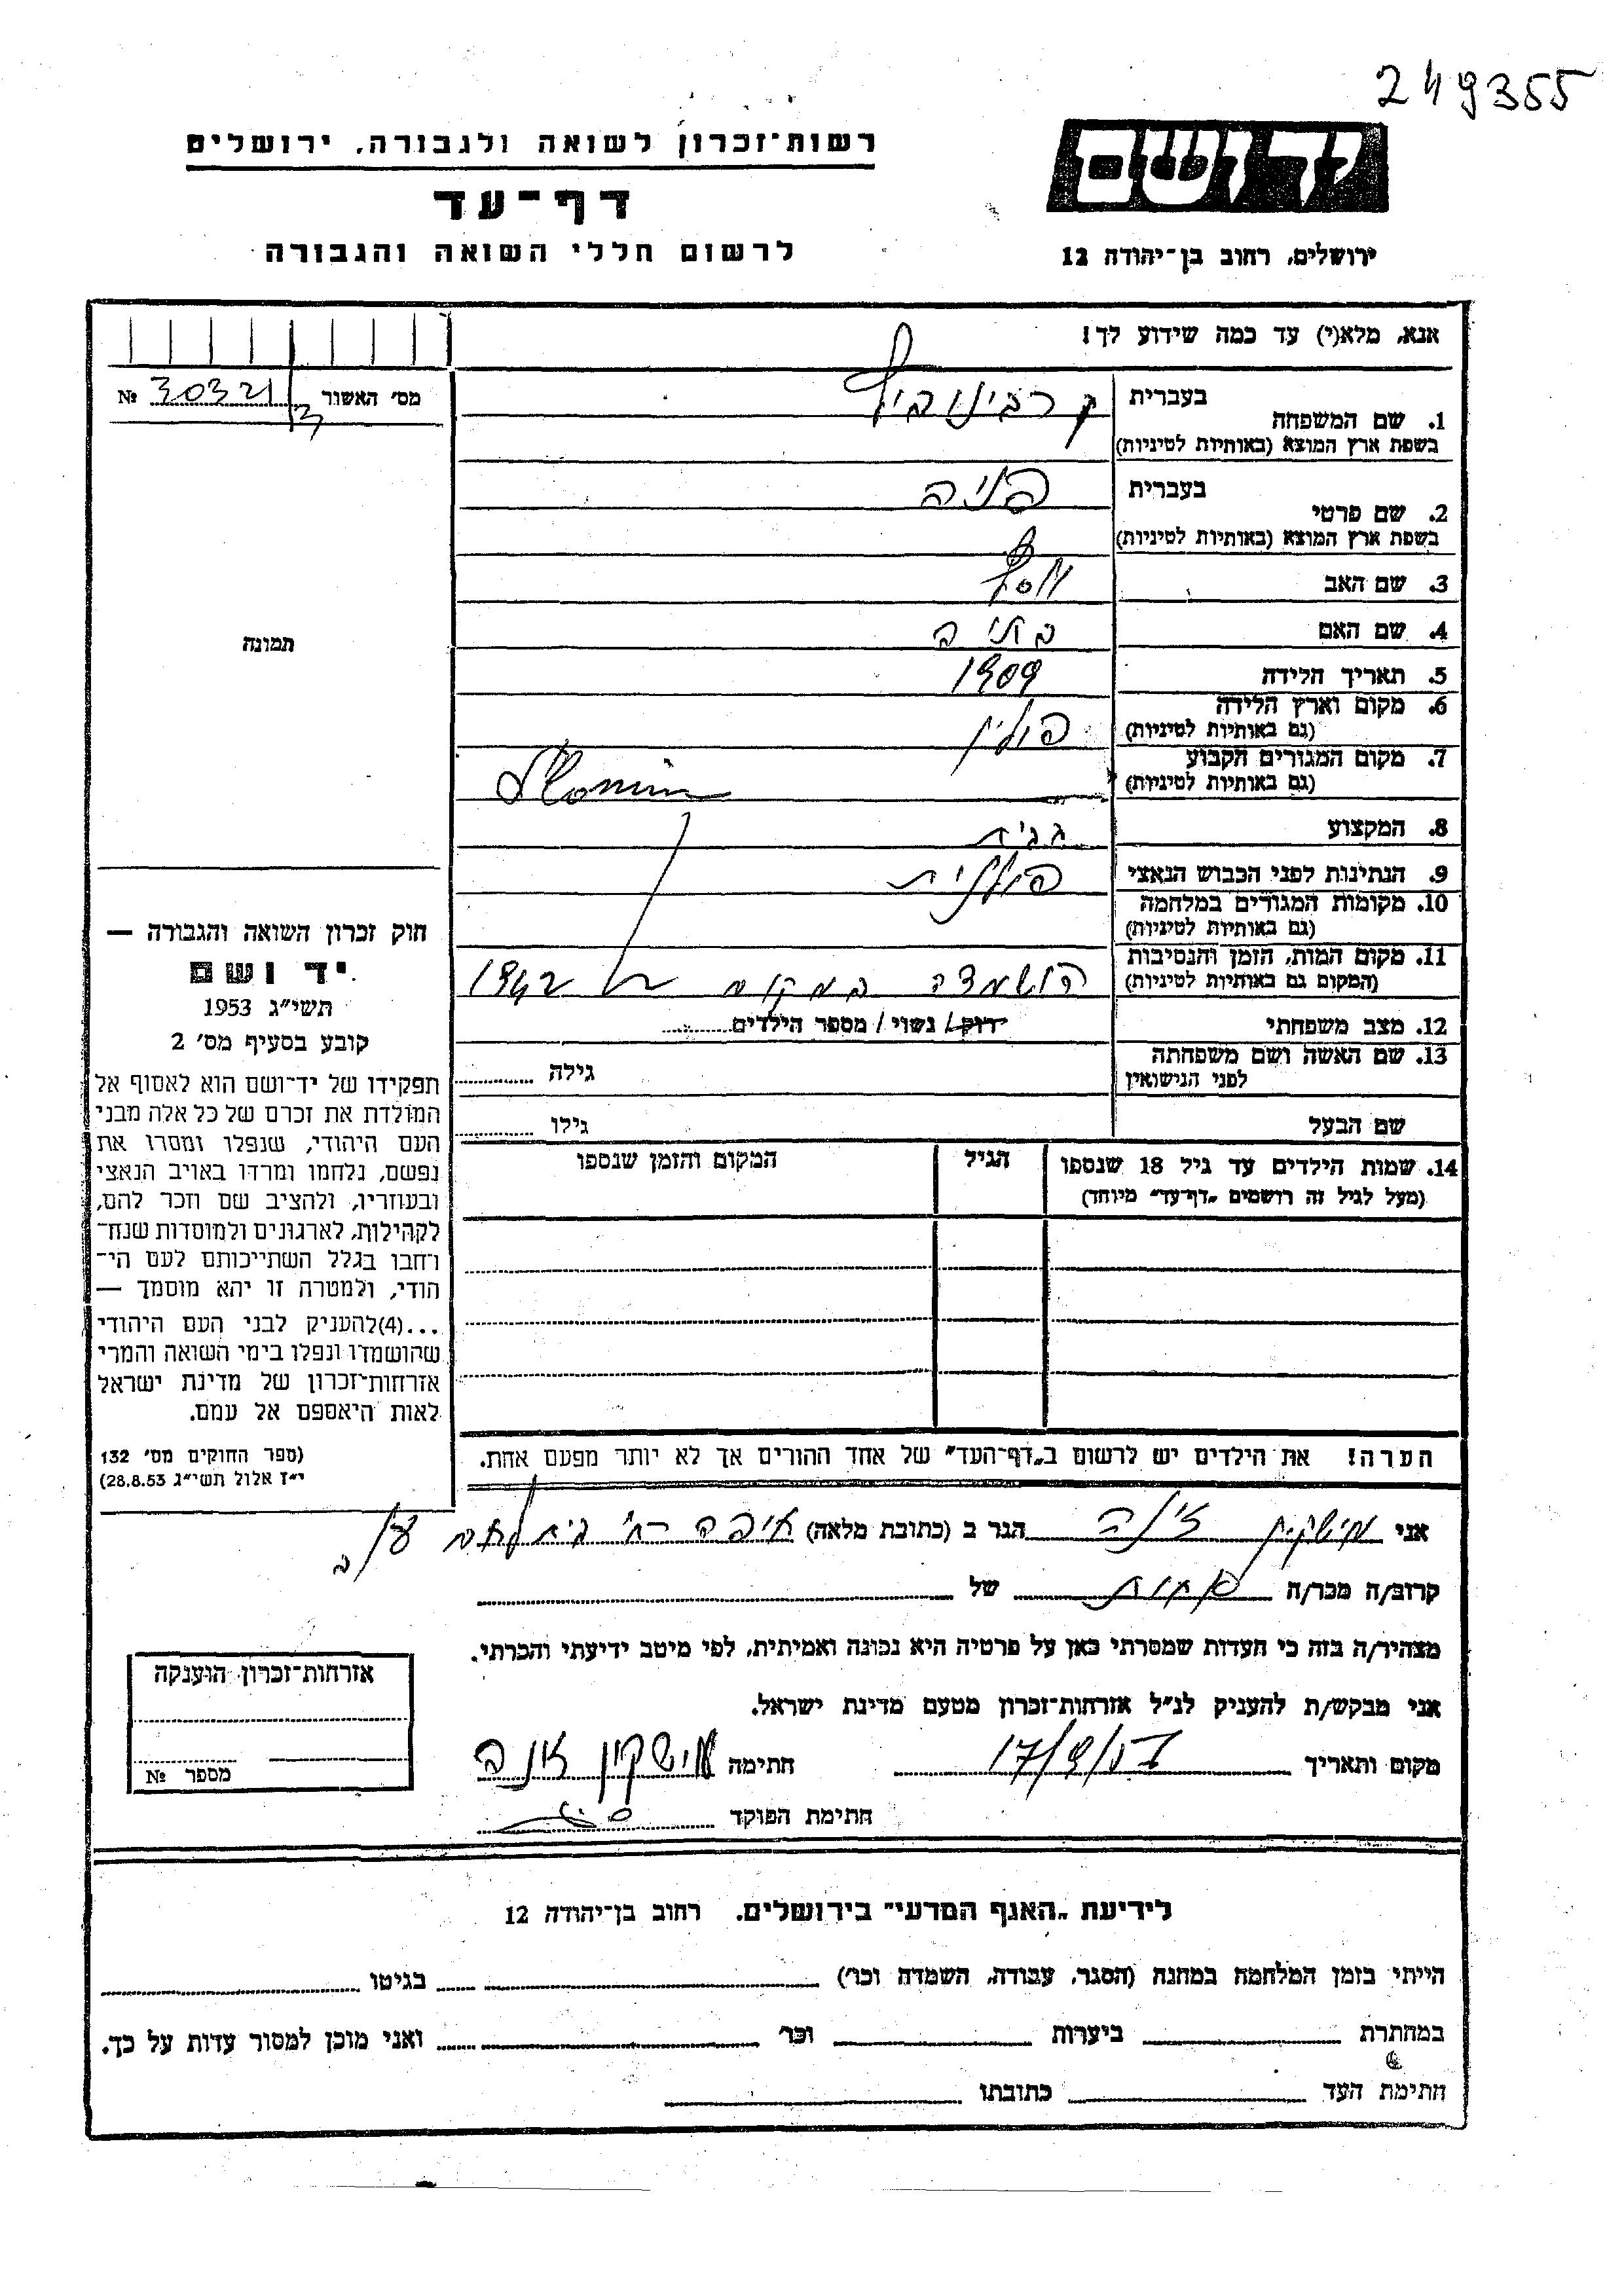 249355
רשות־זכרון לשואה ולגבורה, ירושלים
יד ושם
דף־עד
לרשום חללי השואה והגבורה
ירושלים, רחוב בן־יהודה 12
אנא, מלא(י) עד כמה שידוע לך!
מס׳ האשור № 30321
1. שם המשפחה
בעברית
בשפת ארץ המוצא (באותיות לטיניות)
2. שם פרטי
בעברית פניה
בשפת ארץ המוצא (באותיות לטיניות)
3. שם האב יוסף
4. שם האם
תמונה
5. תאריך הלידה 1909
6. מקום וארץ הלידה פולין
(גם באותיות לטיניות)
7. מקום המגורים הקבוע Slonim
(גם באותיות לטיניות)
8. המקצוע
9. הנתינות לפני הכבוש הנאצי פולנית
10. מקומות המגורים במלחמה
(גם באותיות לטיניות)
11. מקום המות, הזמן והנסיבות
(המקום גם באותיות לטיניות) הושמדה במקום ב 1942
12. מצב משפחתי רווק/ נשוי / מספר הילדים
13. שם האשה ושם משפחתה גילה
לפני הנישואין
שם הבעל גילו
14. שמות הילדים עד גיל 18 שנספו הגיל המקום והזמן שנספו
(מעל לגיל זה רושמים „דף־עד״ מיוחד)
חוק זכרון השואה והגבורה —
יד ושם
תשי״ג 1953
קובע בסעיף מס׳ 2
תפקידו של יד־ושם הוא לאסוף אל
המולדת את זכרם של כל אלה מבני
העם היהודי, שנפלו ומסרו את
נפשם, נלחמו ומרדו באויב הנאצי
ובעוזריו, ולהציב שם וזכר להם,
לקהילות, לארגונים ולמוסדות שנח־
רחבו בגלל השתייכותם לעם הי־
הודי, ולמטרה זו יהא מוסמך —
...(4)להעניק לבני העם היהודי
שהושמדו ונפלו בימי השואה והמרי
אזרחות־זכרון של מדינת ישראל
לאות היאספם אל עמם.
(ספר החוקים מס׳ 132
י״ז אלול תשי״ג 28.8.53)
הערה! את הילדים יש לרשום ב„דף־העד״ של אחד ההורים אך לא יותר מפעם אחת.
אני מישקין הגר ב (כתובת מלאה) חיפה רח׳ בית לחם
קרוב/ה מכר/ה אחות של
מצהיר/ה בזה כי העדות שמסרתי כאן על פרטיה היא נכונה ואמיתית, לפי מיטב ידיעתי והכרתי.
אני מבקש/ת להעניק לנ״ל אזרחות־זכרון מטעם מדינת ישראל.
מקום ותאריך 17/9/57 חתימה מישקין
חתימת הפוקד
אזרחות־זכרון הוענקה
מספר №
לידיעת „האגף המדעי״ בירושלים, רחוב בן־יהודה 12
הייתי בזמן המלחמה במחנה (הסגר, עבודה, השמדה וכו׳) בגיטו
במחתרת ביערות וכו׳ ואני מוכן למסור עדות על כך.
חתימת העד כתובתו